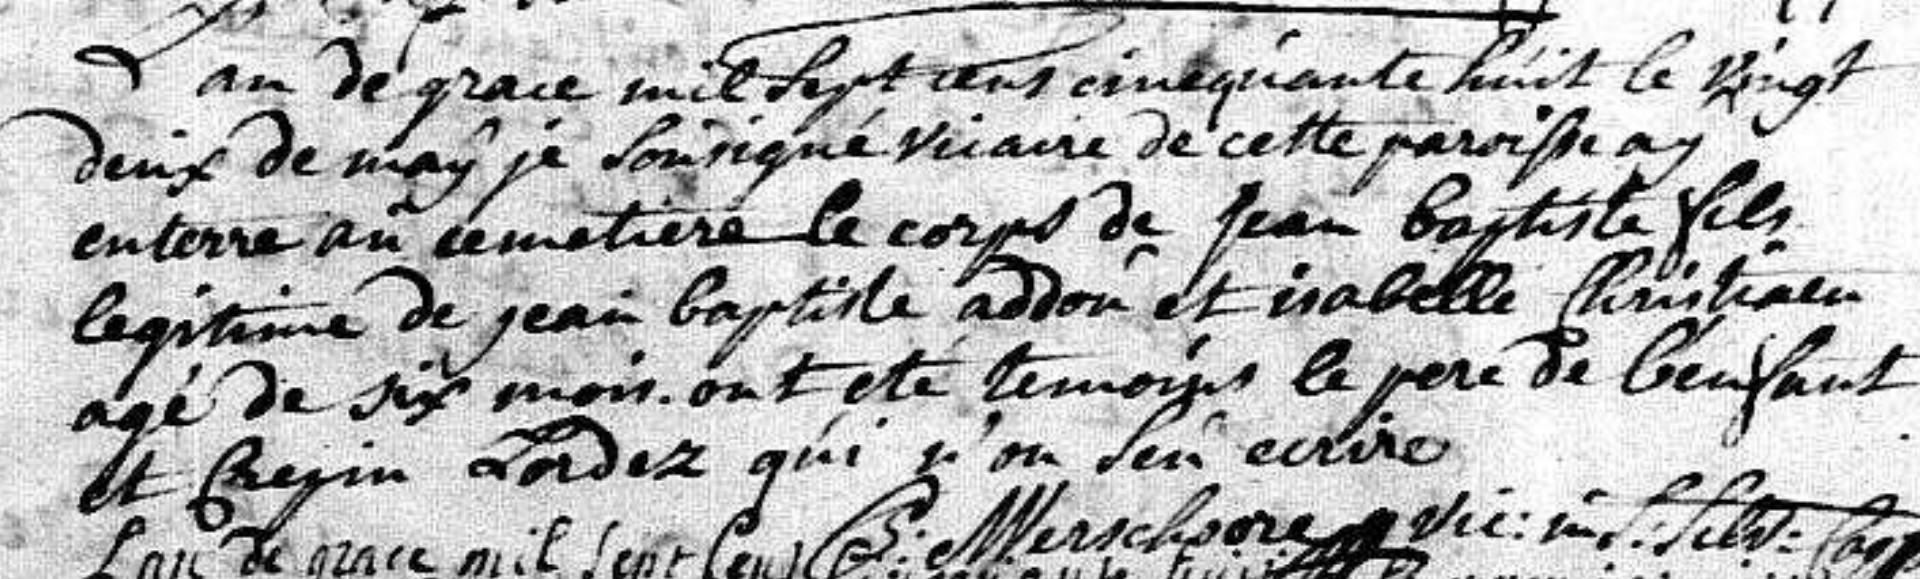 L'an de grace mil sept cens cincquante huit le vingt
deux de maÿ je sousigné vicaire de cette paroisse ay
enterre au cemetiere le corps de jean baptiste fils
legitime de jean baptiste addou et isabelle Christiaen
agé de six mois. ont eté temoins le pere de l'enfant
et Crepin Lordez qui n'on seu ecrire
L'an de grace mil sept Cens